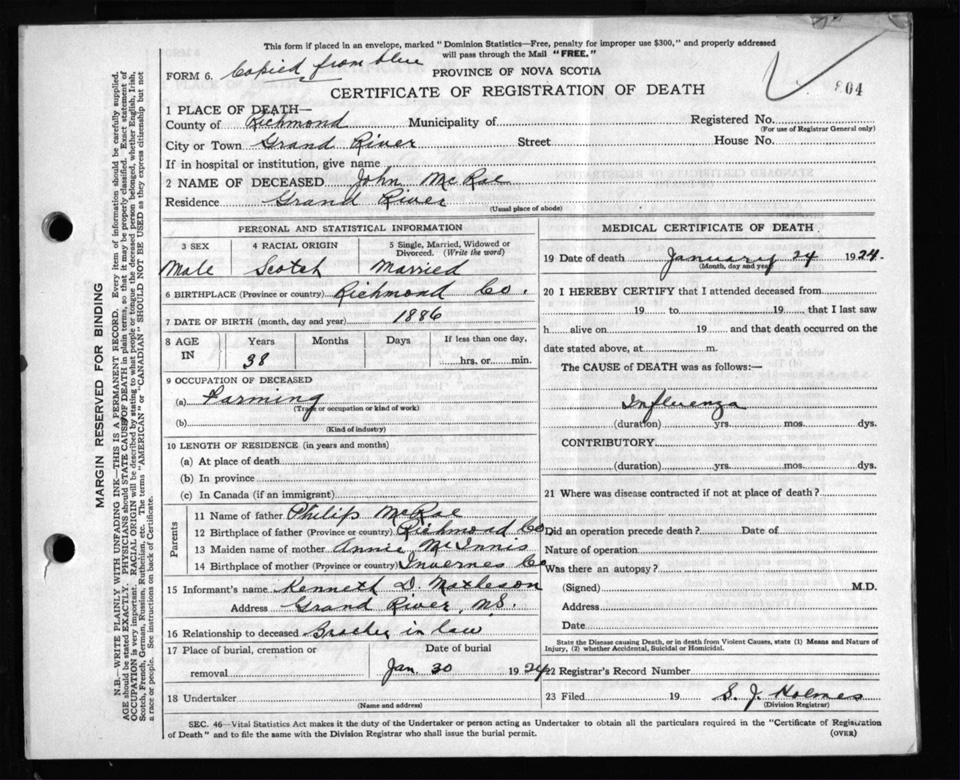 This form if placed in an envelope, marked "Dominion Statistics—Free, penalty for improper use $300," and properly addressed
will pass through the Mail "FREE."
FORM 6. Copied from blue
PROVINCE OF NOVA SCOTIA
CERTIFICATE OF REGISTRATION OF DEATH
804
1 PLACE OF DEATH—
County of Richmond Municipality of Registered No.
(For use of Registrar General only)
City or Town Grand River Street House No.
If in hospital or institution, give name
2 NAME OF DECEASED John McRae
Residence Grand River
(Usual place of abode)
PERSONAL AND STATISTICAL INFORMATION
3 SEX 4 RACIAL ORIGIN 5 Single, Married, Widowed or Divorced. (Write the word)
Male Scotch Married
6 BIRTHPLACE (Province or country) Richmond Co.
7 DATE OF BIRTH (month, day and year) 1886
8 AGE IN Years Months Days If less than one day,
38 hrs. or min.
9 OCCUPATION OF DECEASED
(a) Farming
(Trade or occupation or kind of work)
(b)
(Kind of industry)
10 LENGTH OF RESIDENCE (in years and months)
(a) At place of death
(b) In province
(c) In Canada (if an immigrant)
Parents
11 Name of father Philip McRae
12 Birthplace of father (Province or country) Richmond Co
13 Maiden name of mother Annie McInnis
14 Birthplace of mother (Province or country) Invernes Co
15 Informant's name Kenneth D. Matheson
Address Grand River, N.S.
16 Relationship to deceased Brother in law
17 Place of burial, cremation or Date of burial
removal Jan 30 1924
18 Undertaker
(Name and address)
MEDICAL CERTIFICATE OF DEATH
19 Date of death January 24 1924.
(Month, day and year)
20 I HEREBY CERTIFY that I attended deceased from
19 to 19 , that I last saw
h alive on 19 and that death occurred on the
date stated above, at m.
The CAUSE of DEATH was as follows:—
Influenza
(duration) yrs. mos. dys.
CONTRIBUTORY
(duration) yrs. mos. dys.
21 Where was disease contracted if not at place of death?
Did an operation precede death? Date of
Nature of operation
Was there an autopsy?
(Signed) M.D.
Address
Date
State the Disease causing Death, or in death from Violent Causes, state (1) Means and Nature of
Injury, (2) whether Accidental, Suicidal or Homicidal.
22 Registrar's Record Number
23 Filed 19 S. J. Holmes
(Division Registrar)
SEC. 46—Vital Statistics Act makes it the duty of the Undertaker or person acting as Undertaker to obtain all the particulars required in the "Certificate of Registration
of Death" and to file the same with the Division Registrar who shall issue the burial permit. (OVER)
MARGIN RESERVED FOR BINDING
N.B.—WRITE PLAINLY WITH UNFADING INK—THIS IS A PERMANENT RECORD. Every item of information should be carefully supplied.
AGE should be stated EXACTLY. PHYSICIANS should STATE CAUSE OF DEATH in plain terms, so that it may be properly classified. Exact statement of
OCCUPATION is very important. RACIAL ORIGIN will be described by stating to what people or tongue the deceased person belonged, whether English, Irish,
Scotch, French, German, Russian, Ruthenian, etc. The terms "AMERICAN" or "CANADIAN" SHOULD NOT BE USED as they express citizenship but not
a race or people. See instructions on back of Certificate.